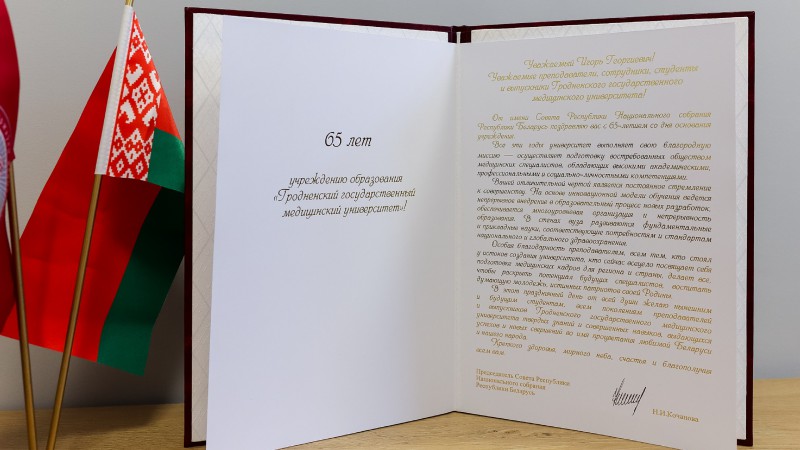 65 лет
учреждению образования
«Гродненский государственный
медицинский университет»!
Уважаемый Игорь Георгиевич!
Уважаемые преподаватели, сотрудники, студенты
и выпускники Гродненского государственного
медицинского университета!
От имени Совета Республики Национального собрания
Республики Беларусь поздравляю вас с 65-летием со дня основания
учреждения.
Все эти годы университет выполняет свою благородную
миссию — осуществляет подготовку востребованных обществом
медицинских специалистов, обладающих высокими академическими,
профессиональными и социально-личностными компетенциями.
Вашей отличительной чертой является постоянное стремление
к совершенству. На основе инновационной модели обучения ведется
непрерывное внедрение в образовательный процесс новых разработок,
обеспечивается многоуровневая организация и непрерывность
образования. В стенах вуза развиваются фундаментальные
и прикладные науки, соответствующие потребностям и стандартам
национального и глобального здравоохранения.
Особая благодарность преподавателям, всем тем, кто стоял
у истоков создания университета, кто сейчас всецело посвящает себя
подготовке медицинских кадров для региона и страны, делает все,
чтобы раскрыть потенциал будущих специалистов, воспитать
думающую молодежь, истинных патриотов своей Родины.
В этот праздничный день от всей души желаю нынешним
и будущим студентам, всем поколениям преподавателей
и выпускникам Гродненского государственного медицинского
университета твердых знаний и совершенных навыков, выдающихся
успехов и новых свершений во имя процветания любимой Беларуси
и нашего народа.
Крепкого здоровья, мирного неба, счастья и благополучия
всем вам.
Председатель Совета Республики
Национального собрания
Республики Беларусь
Н.И.Кочанова